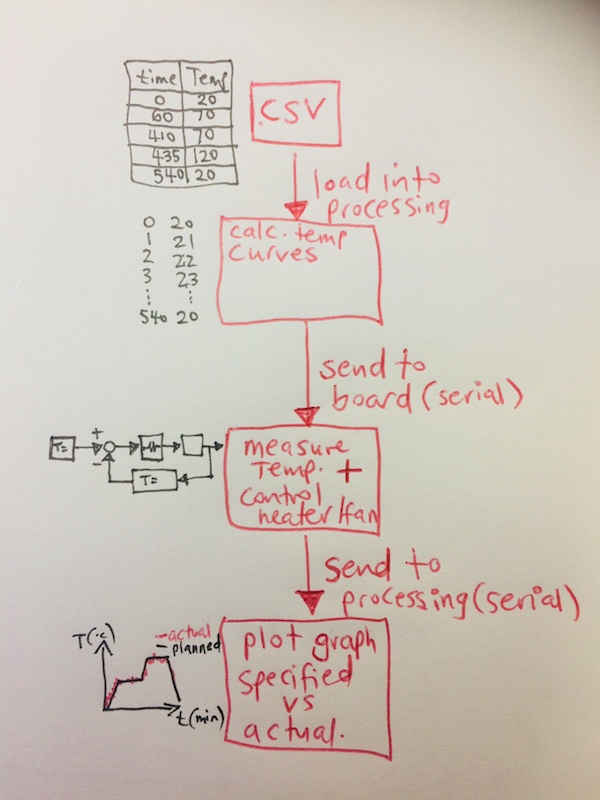 time Temp
0 20
60 70
410 70
435 120
540 20
.CSV
load into
processing
0 20
1 21
2 22
3 23
⋮ ⋮
540 20
calc. temp
curves
send to
board (serial)
T=
+
-
T=
measure
Temp. +
control
heater/fan
send to
processing (serial)
T(°c)
-actual
-planned
t(min)
plot graph
specified
vs
actual.